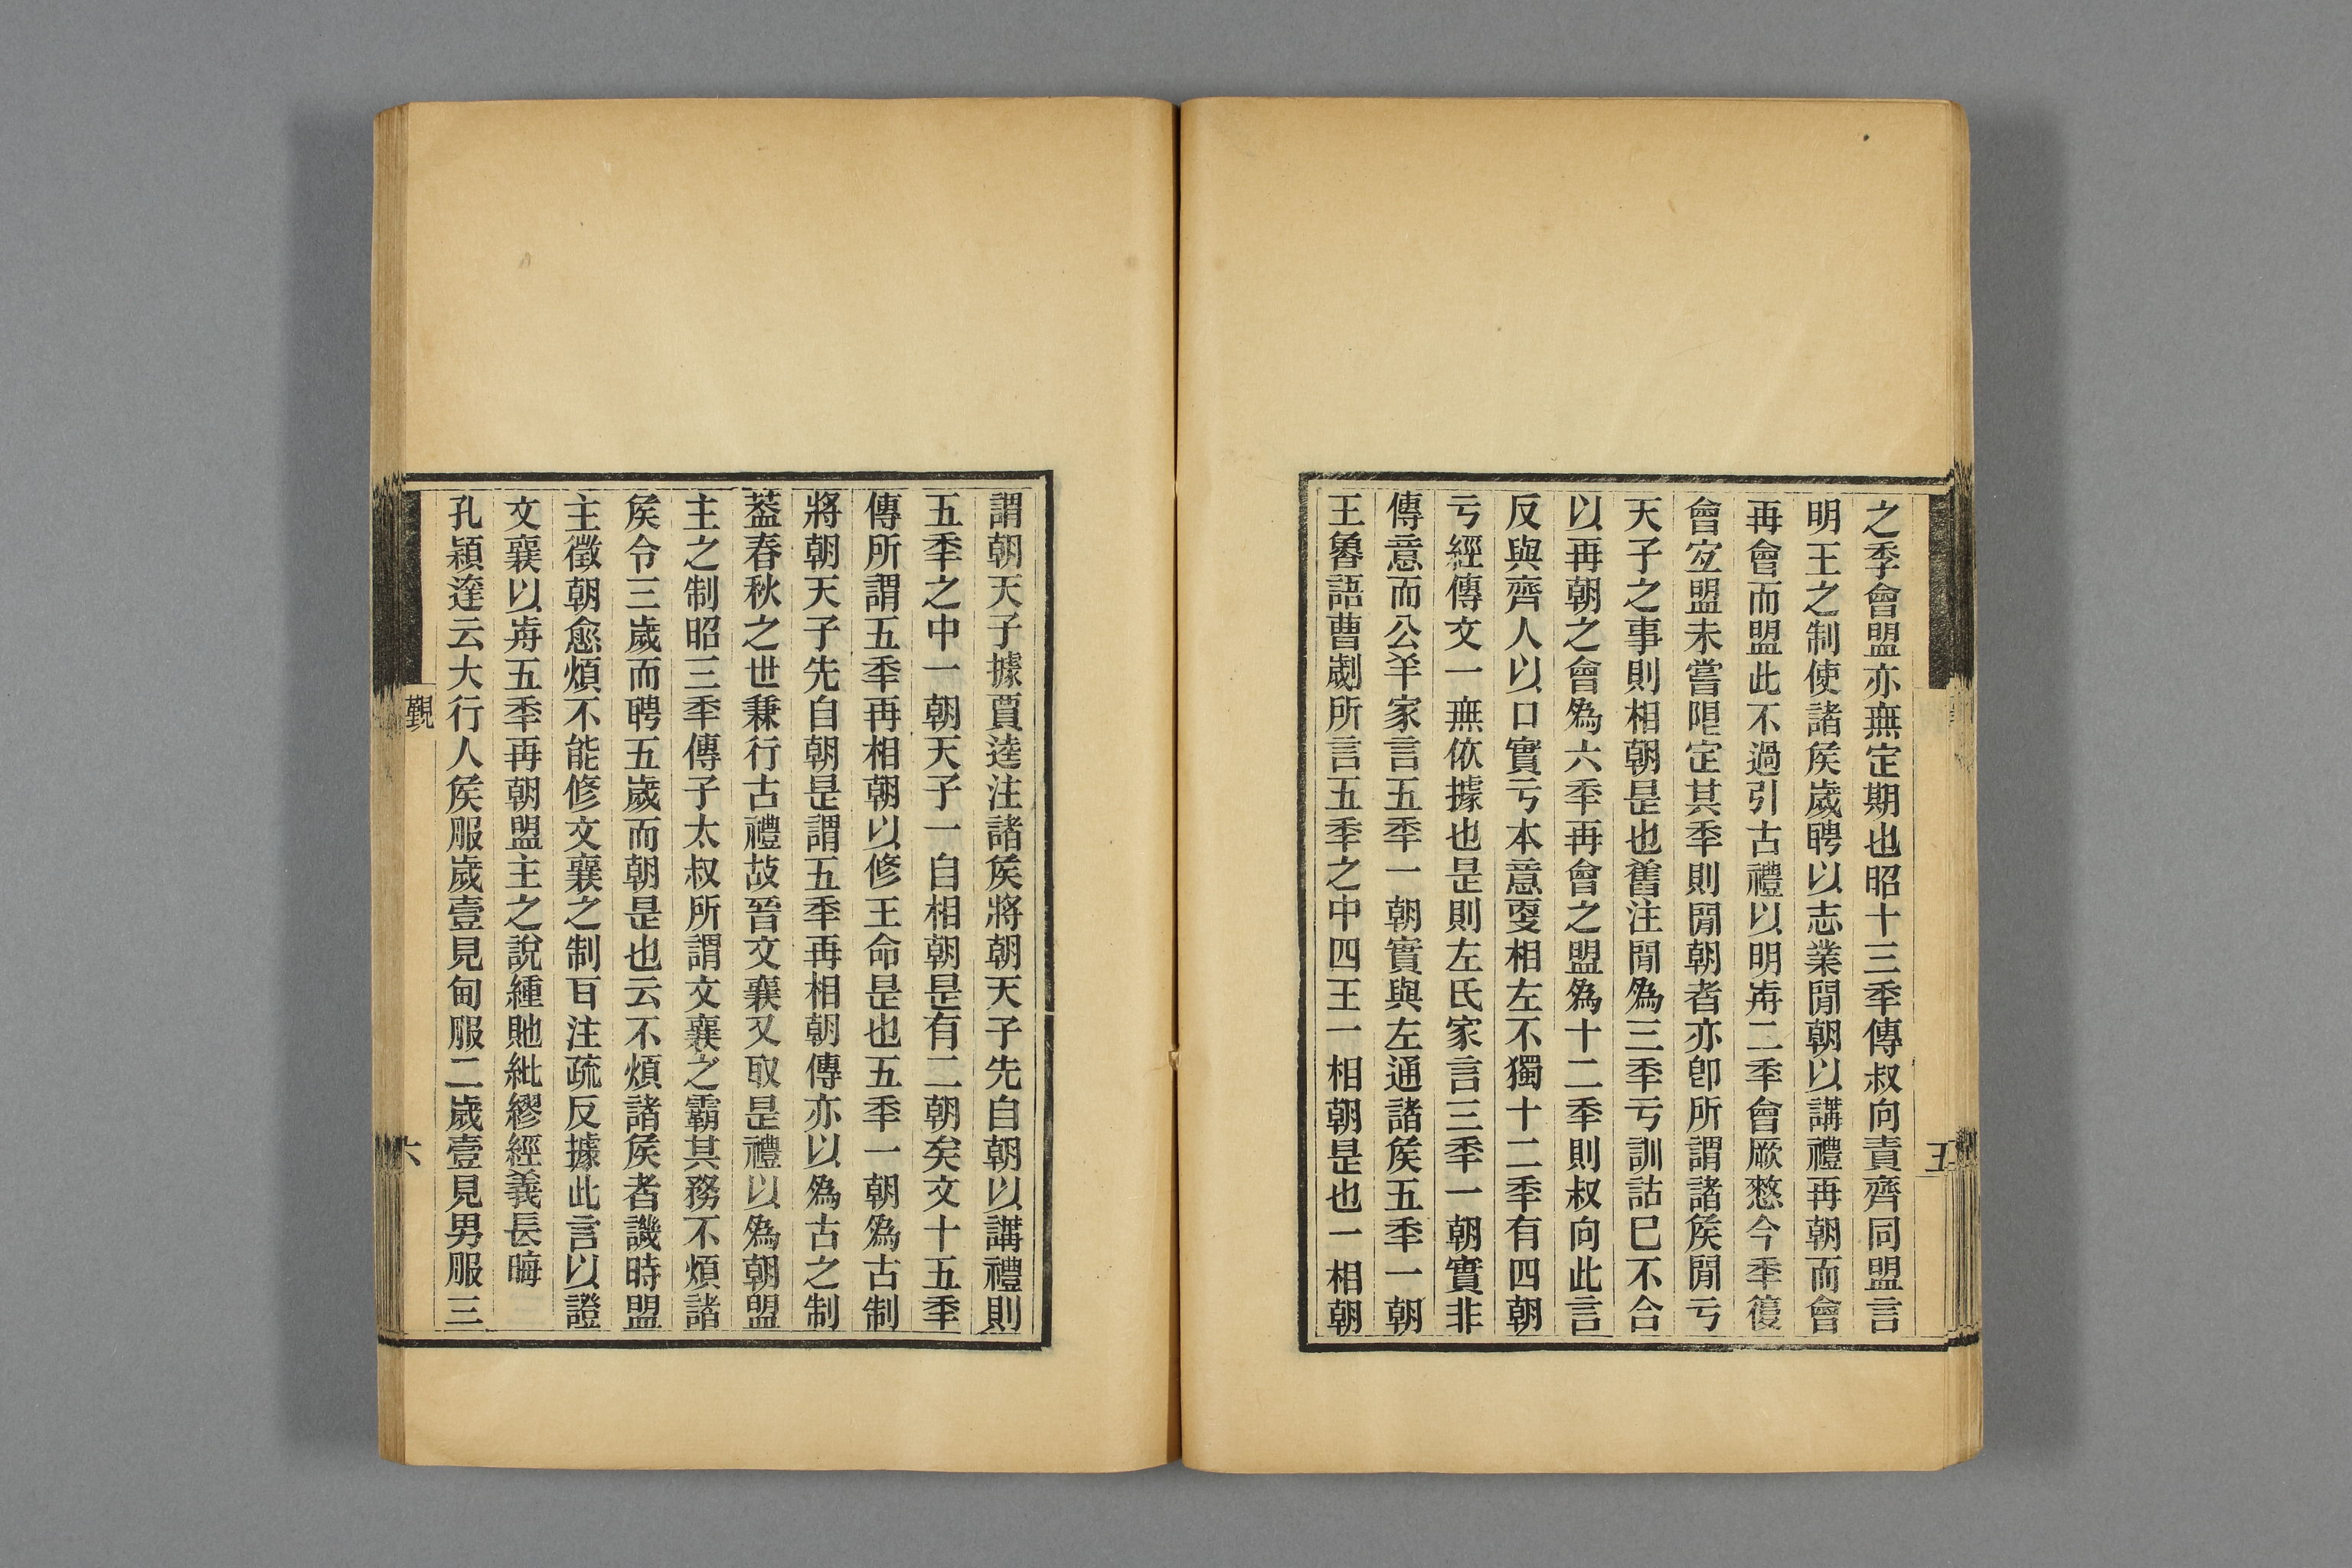 之秊會盟亦無定期也昭十三秊傳叔向責齊同盟言
明王之制使諸矦歲聘以志業閒朝以講禮再朝而會
再會而盟此不過引古禮以明歬二秊會厥憖今秊復
會宐盟未嘗限定其秊則閒朝者亦卽所謂諸矦閒亏
天子之事則相朝是也舊注閒爲三秊亏訓詁巳不合
以再朝之會爲六秊再會之盟爲十二秊則叔向此言
反與齊人以口實亏本意㪅相左不獨十二秊有四朝
亏經傳文一無依據也是則左氏家言三秊一朝實非
傳意而公羊家言五秊一朝實與左通諸矦五秊一朝
王魯語曹劌所言五秊之中四王一相朝是也一相朝
五
謂朝天子據賈逵注諸矦將朝天子先自朝以講禮則
五秊之中一朝天子一自相朝是有二朝矣文十五秊
傳所謂五秊再相朝以修王命是也五秊一朝爲古制
將朝天子先自朝是謂五秊再相朝傳亦以爲古之制
葢春秋之世兼行古禮故晉文襄又取是禮以爲朝盟
主之制昭三秊傳子太叔所謂文襄之霸其務不煩諸
矦令三歲而聘五歲而朝是也云不煩諸矦者譏時盟
主徵朝愈煩不能修文襄之制百注疏反據此言以證
文襄以歬五秊再朝盟主之說緟貤紕繆經義長晦
孔穎達云大行人矦服歲壹見甸服二歲壹見男服三
覲
六